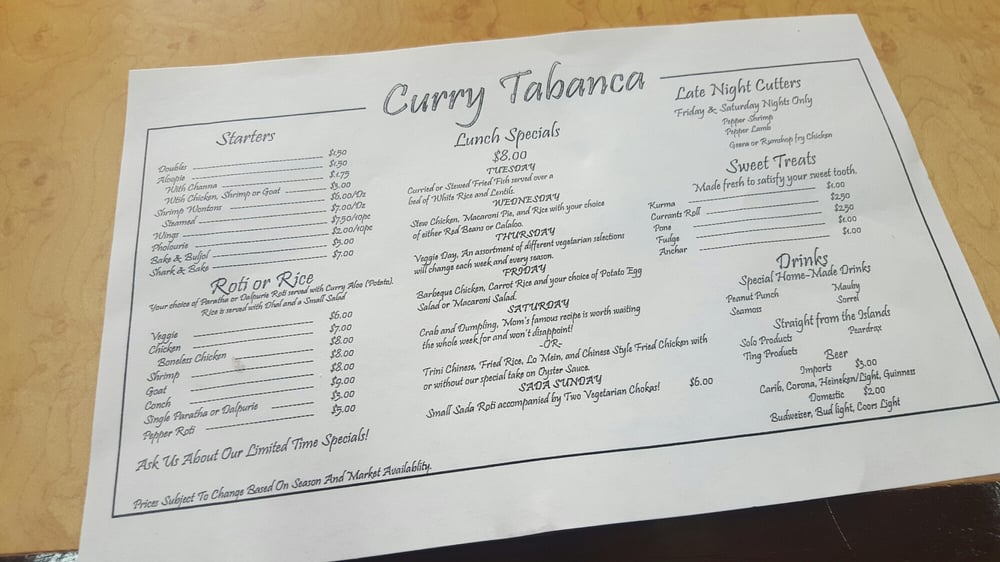 Curry Tabanca
Starters
Doubles $1.50
Aloopie $1.50
With Channa $1.75
With Chicken, Shrimp or Goat $3.00
Shrimp Wontons $6.00/Dz
Steamed $7.00/Dz
Wings $7.50/10pc
Pholourie $2.00/10pc
Bake & Buljol $5.00
Shark & Bake $7.00
Roti or Rice
Your choice of Paratha or Dalpurie Roti served with Curry Aloo (Potato).
Rice is served with Dhal and a Small Salad
Veggie $6.00
Chicken $7.00
Boneless Chicken $8.00
Shrimp $8.00
Goat $8.00
Conch $9.00
Single Paratha or Dalpurie $3.00
Pepper Roti $5.00
Ask Us About Our Limited Time Specials!
Prices Subject To Change Based On Season And Market Availablity.
Lunch Specials
$8.00
TUESDAY
Curried or Stewed Fried Fish served over a
bed of White Rice and Lentils.
WEDNESDAY
Stew Chicken, Macaroni Pie, and Rice with your choice
of either Red Beans or Calaloo.
THURSDAY
Veggie Day, An assortment of different vegetarian selections
will change each week and every season.
FRIDAY
Barbeque Chicken, Carrot Rice and your choice of Potato Egg
Salad or Macaroni Salad.
SATURDAY
Crab and Dumpling, Mom's famous recipe is worth waiting
the whole week for and won't disappoint!
-OR-
Trini Chinese, Fried Rice, Lo Mein, and Chinese Style Fried Chicken with
or without our special take on Oyster Sauce.
SADA SUNDAY
Small Sada Roti accompanied by Two Vegetarian Chokas! $6.00
Late Night Cutters
Friday & Saturday Nights Only
Pepper Shrimp
Pepper Lamb
Geera or Rumshop fry Chicken
Sweet Treats
Made fresh to satisfy your sweet tooth.
Kurma $1.00
Currants Roll $2.50
Pone $2.50
Fudge $1.00
Anchar $1.00
Drinks
Special Home-Made Drinks
Peanut Punch Mauby
Seamoss Sorrel
Straight from the Islands
Solo Products Peardrax
Ting Products
Beer
Imports $3.00
Carib, Corona, Heineken/Light, Guinness
Domestic $2.00
Budweiser, Bud light, Coors Light